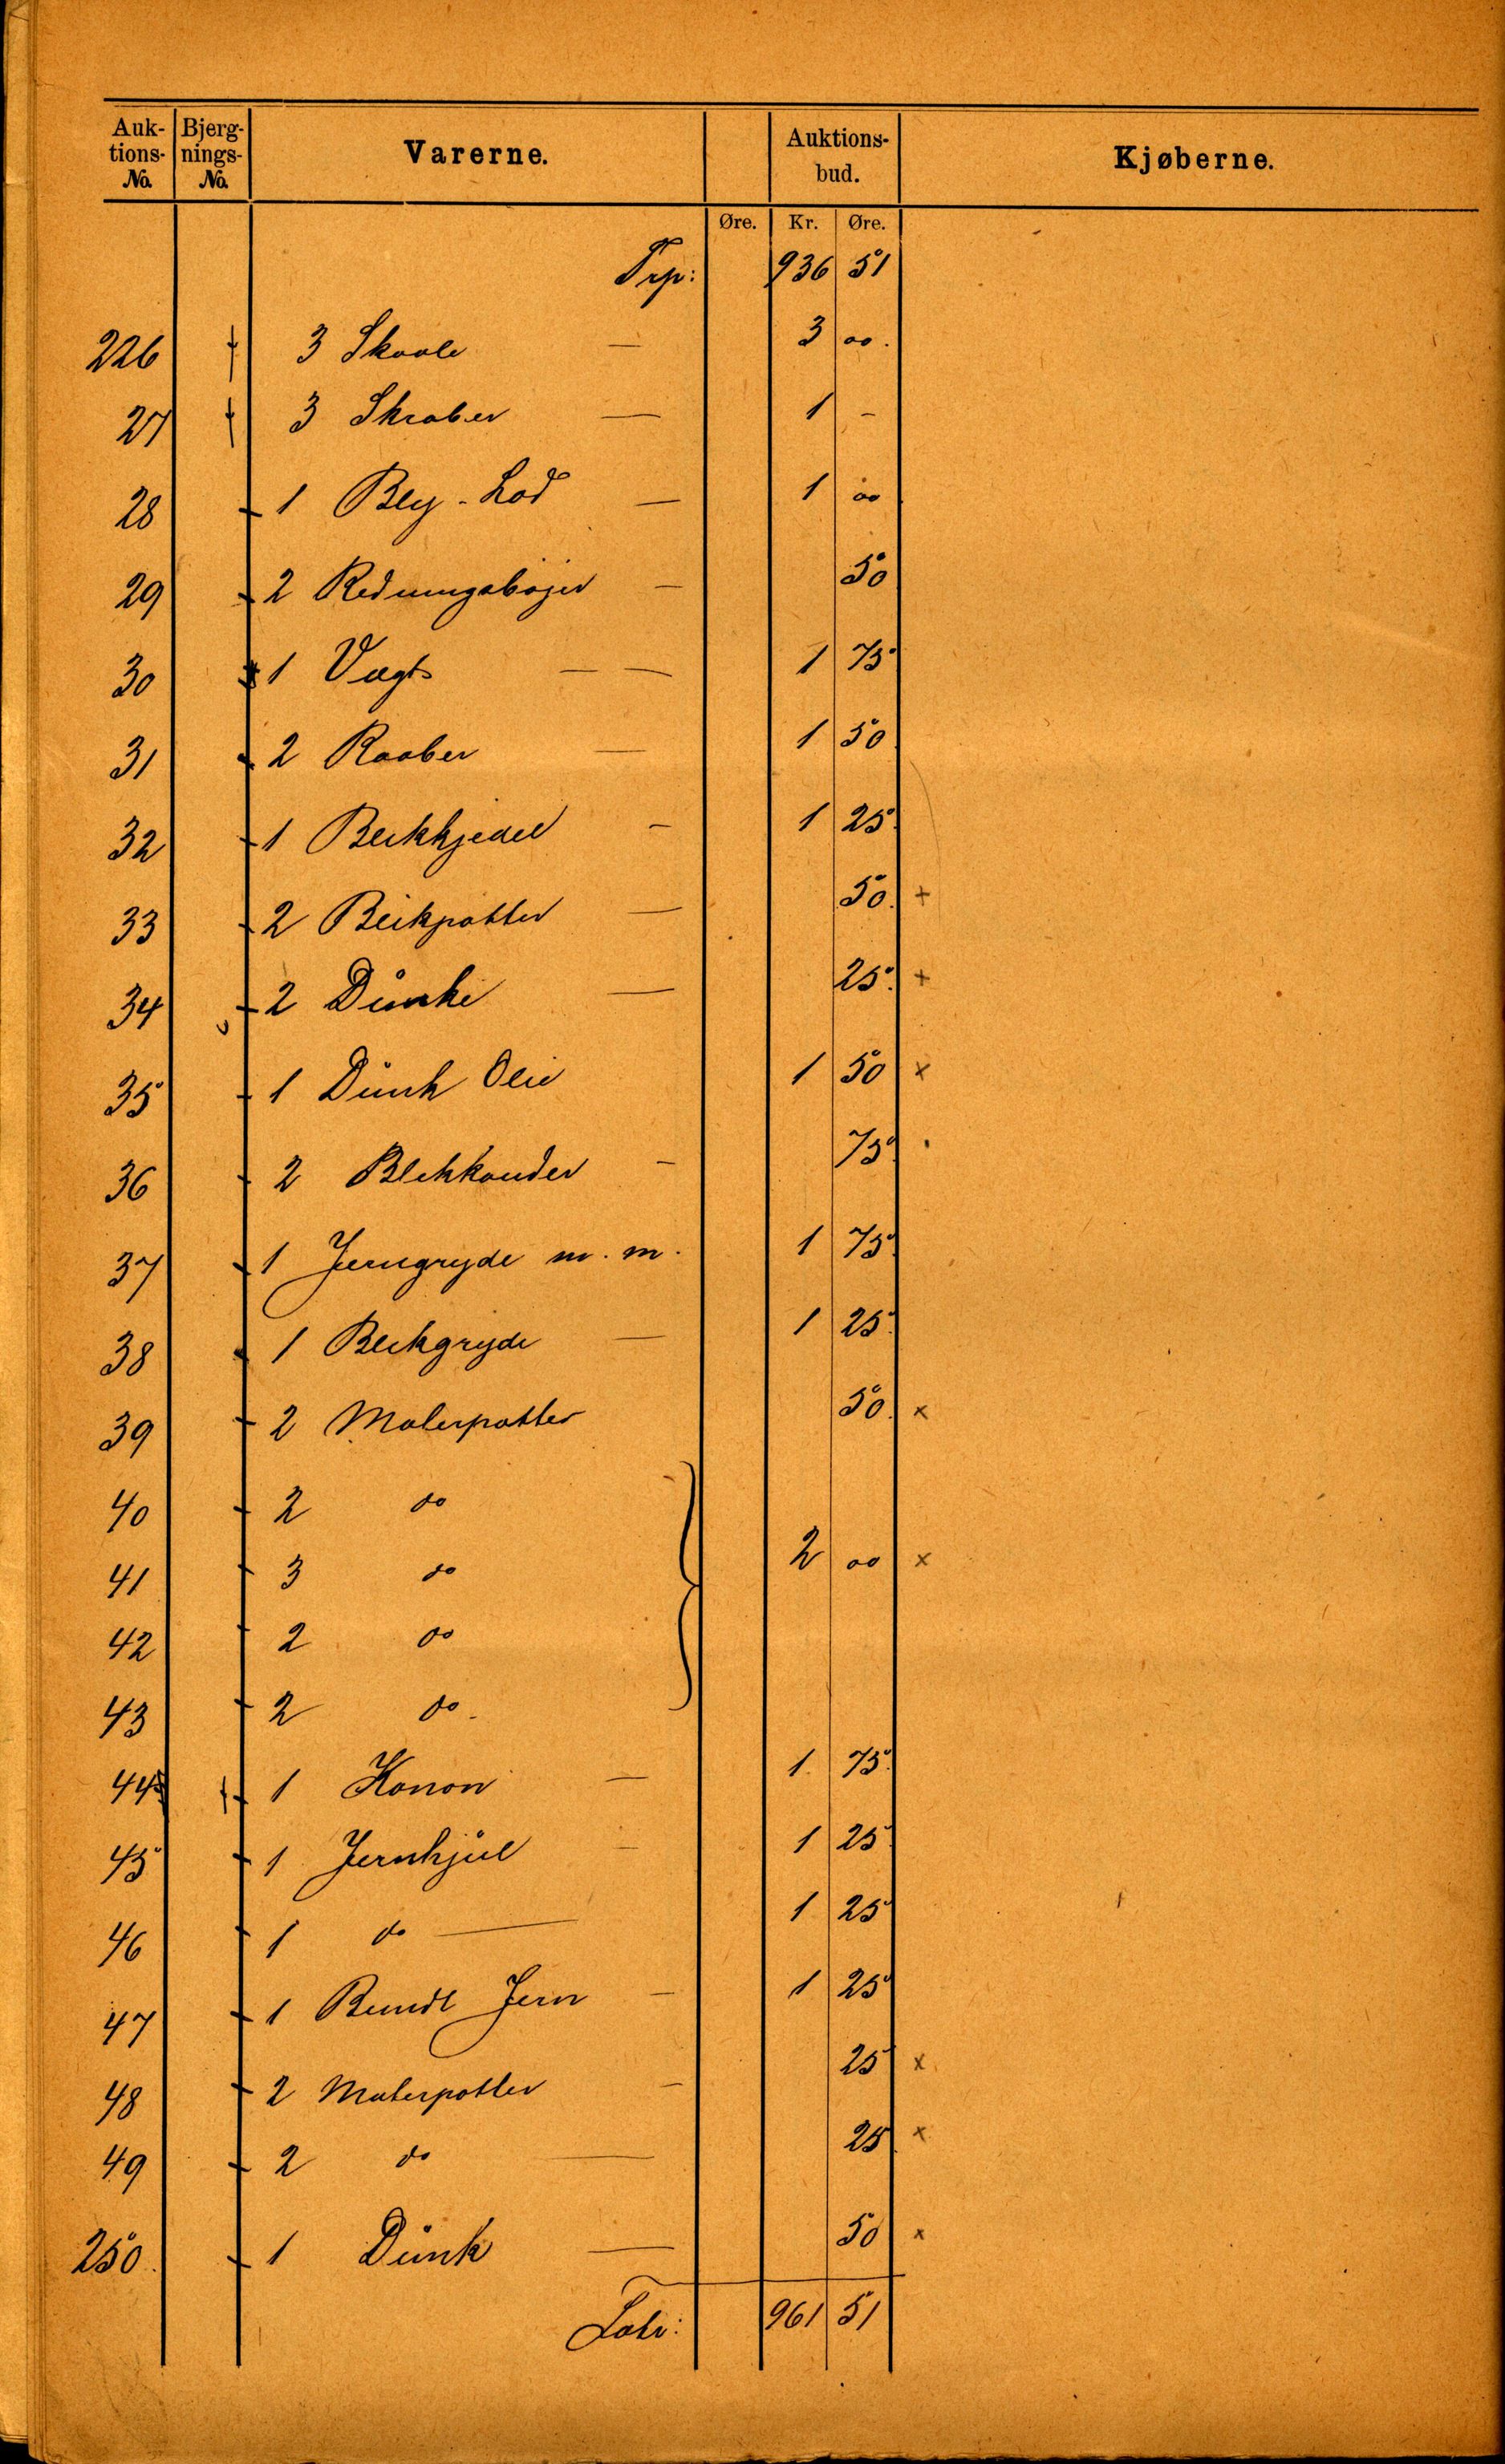 Auk- Bjerg- Varerne. Auktions- Kjøberne.
tions- nings- bud.
No. No.
Øre. Kr. Øre.
Trp: 936 51
226 3 Skaale — 3 00.
27 3 Skraber — 1 –
28 1 Bly-Lod — 1 00
29 2 Redningsbøjer — 50
30 1 Vægt — — 1 75
31 2 Raaber — 1 50
32 1 Beckkjedel — 1 25
33 2 Beckpotter — 50. +
34 2 Dunke — 25. +
35 1 Dunk Olie 1 50 x
36 2 Blikkander — 75.
37 1 Jerngryde m. m. 1 75.
38 1 Beckgryde — 1 25.
39 2 Malerpotter 50. x
40 2 do
41 3 do 2 00 x
42 2 do
43 2 do.
44 1 Kanon — 1. 75.
45 1 Jernhjul — 1 25.
46 1 do — 1 25
47 1 Bundt Jern — 1 25
48 2 Malerpotter — 25 x
49 2 do — 25 x
250. 1 Dunk — 50 x
Latr: 961 51